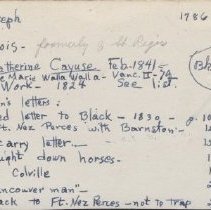 seph 1786
ois - formerly of St Regis
atherine Cayuse Feb-1841-
e Marie Walla Walla - Vanc. II-79
Work - 1824 See list.
n's letters:
d letter to Black - 1830 -
t. Nez Perces with Barnston-
carry letter
ught down horses.
Colville
ancouver man"-
ack to Ft. Nez Perces - not to trap